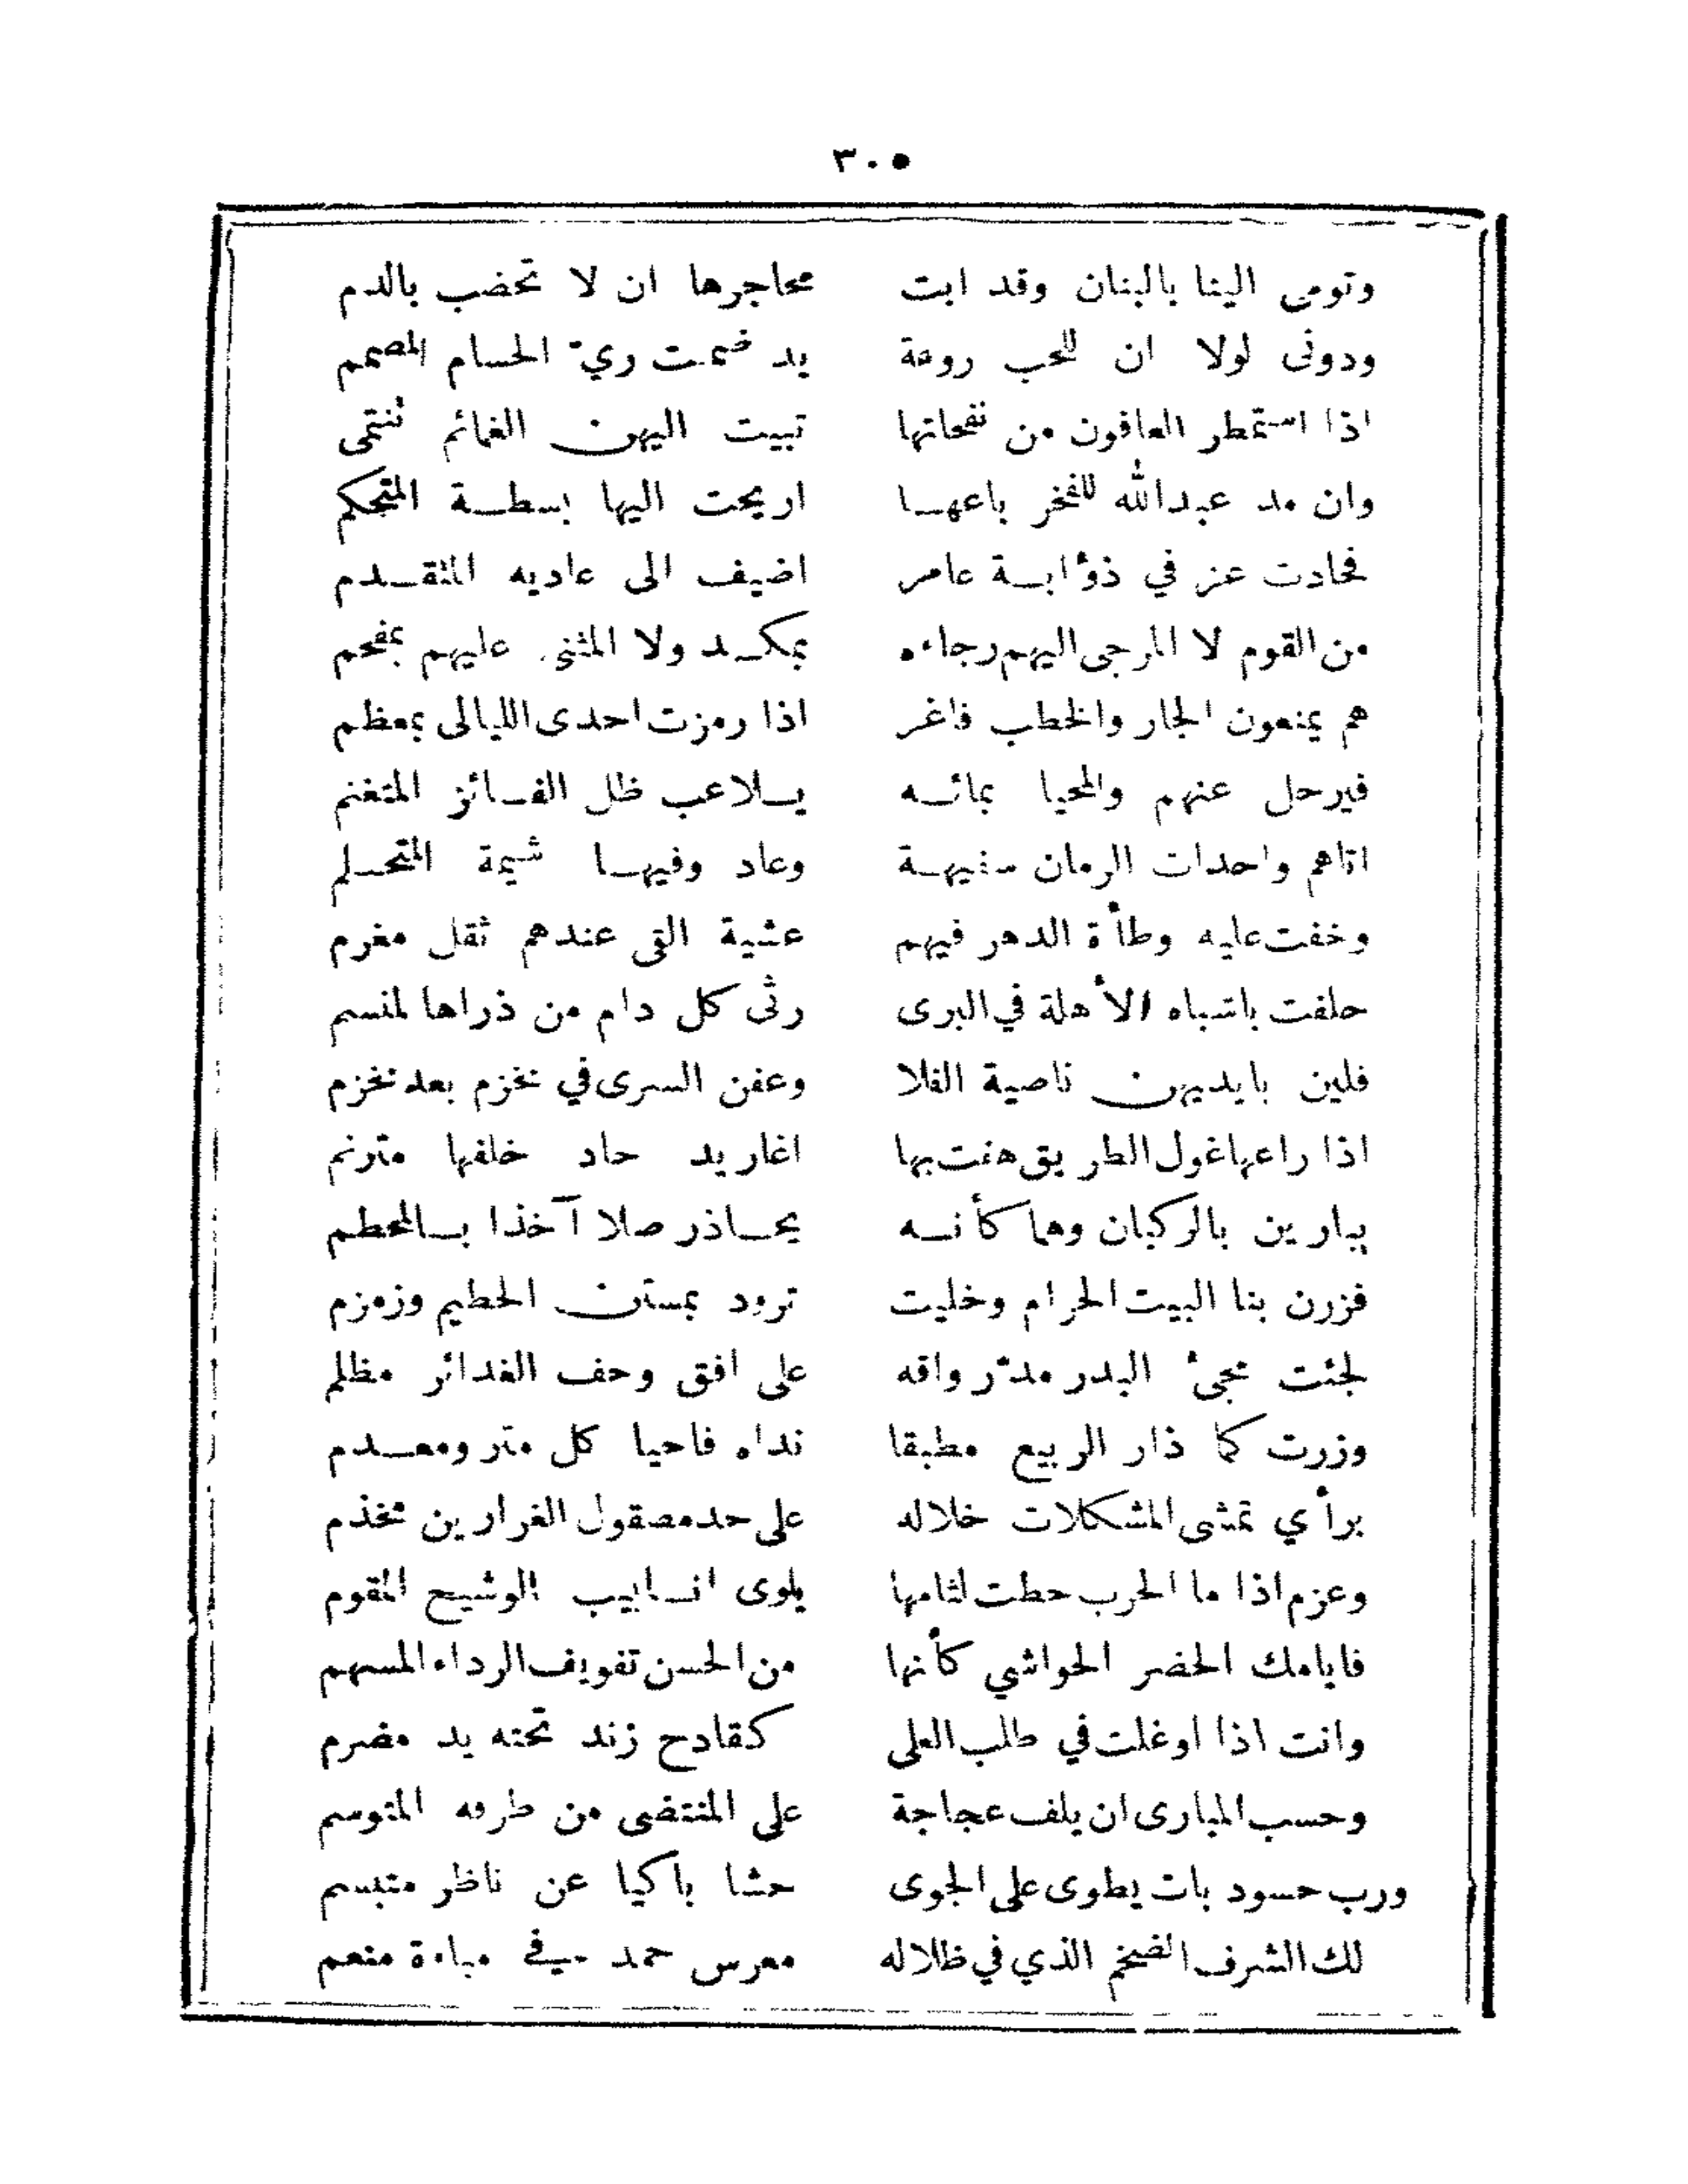 ٣٠٥
وتومى الينا بالبنان وقد ابت محاجرها ان لا تخضب بالدم
ودونى لولا ان للحب روعة يد ضمت ريّ الحسام المصمم
اذا استمطر العافون من نفحاتها تبيت اليهن الغمائم تنتمى
وان مد عبدالله للفخر باعهـا اريحت اليها بسطـة المتحكم
فحادت عز في ذؤابـة عامر اضيف الى عاديه المتقـدم
من القوم لا المرجى اليهم رجاءه بمكـد ولا المثنى عليهم بمفحم
هم يمنعون الجار والخطب فاغر اذا رمزت احدى الليالى بمعظم
فيرحل عنهم والمحيا بمائـه يـلاعب ظل الفـائز المتغنم
اتاهم واحدات الزمان سفيهـة وعاد وفيهـا شيمة المتحـلم
وخفت عليه وطأة الدهر فيهم عشية القى عندهم ثقل مغرم
حلفت باشباه الأهلة في البرى رثى كل دام من ذراها لمنسم
فلين بايديهن ناصية الفلا وعفن السرى في مخزم بعد مخزم
اذا راعها غول الطريق هفت بها اغاريد حاد خلفها مترنم
يبارين بالركبان وهما كأنـه يحـاذر صلا آخذا بـالمحطم
فزرن بنا البيت الحرام وخليت ترود بمستن الحطيم وزمزم
لجئت مجئ البدر مدّ رواقه على افق وحف الغدائر مظلم
وزرت كما ذار الربيع مطبقا نداه فاحيا كل مثر ومعـدم
برأي تمشى المشكلات خلاله على حد مصقول الغرارين مخذم
وعزم اذا ما الحرب حطت لثامها يلوى انـابيب الوشيح المقوم
فايامك الخضر الحواشي كأنها من الحسن تفويف الرداء المسهم
وانت اذا اوغلت في طلب العلى كقادح زند تحته يد مضرم
وحسب المبارى ان يلف عجاجة على المنتضى من طرفه المتوسم
ورب حسود بات يطوى على الجوى حشا باكيا عن ناظر متبسم
لك الشرف الضخم الذي في ظلاله معرس حمد في مباءة منعم